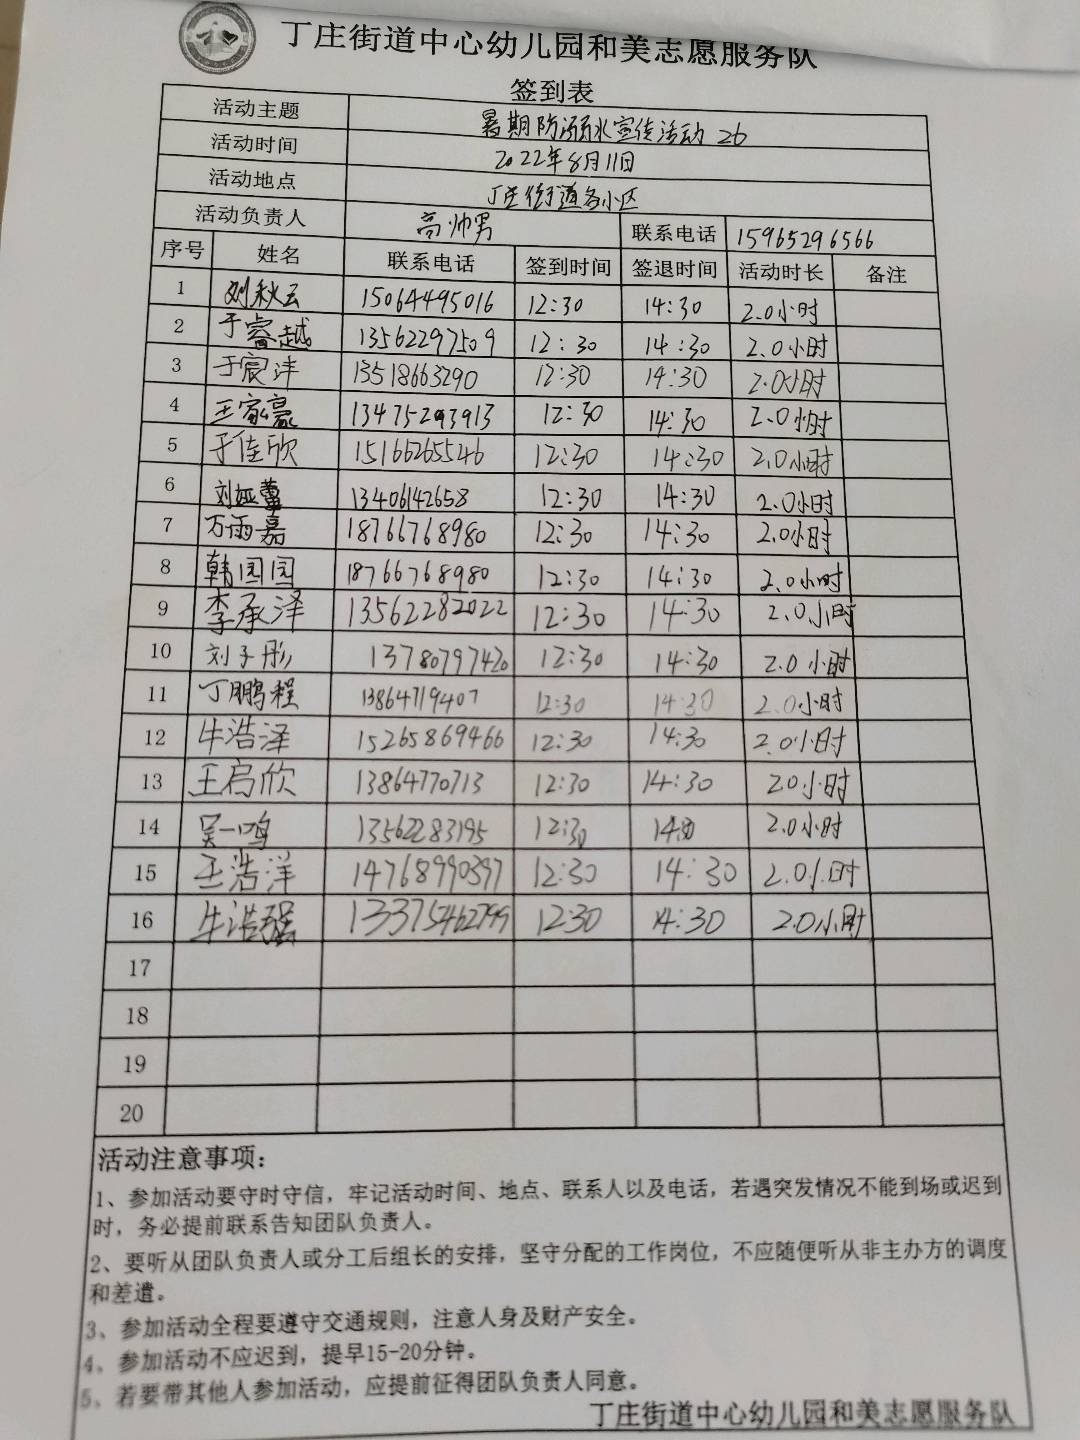 丁庄街道中心幼儿园和美志愿服务队
签到表
活动主题 暑期防溺水宣传活动 26
活动时间 2022年8月11日
活动地点 丁庄街道各小区
活动负责人 高帅男 联系电话 15965296566
序号 姓名 联系电话 签到时间 签退时间 活动时长 备注
1 刘秋云 15064495016 12:30 14:30 2.0小时
2 于睿越 13562297509 12:30 14:30 2.0小时
3 于宸沣 13518663290 12:30 14:30 2.0小时
4 王家豪 13475293913 12:30 14:30 2.0小时
5 于佳欣 15166265546 12:30 14:30 2.0小时
6 刘娅蕾 13406142658 12:30 14:30 2.0小时
7 万雨嘉 18766768980 12:30 14:30 2.0小时
8 韩园园 18766768980 12:30 14:30 2.0小时
9 李承泽 13562282022 12:30 14:30 2.0小时
10 刘子彤 13780797420 12:30 14:30 2.0小时
11 丁鹏程 13864719407 12:30 14:30 2.0小时
12 牛浩泽 15265869466 12:30 14:30 2.0小时
13 王启欣 13864770713 12:30 14:30 2.0小时
14 吴一鸣 13562283195 12:30 2.0小时
15 王浩洋 14768990397 12:30 14:30 2.0小时
16 牛浩 12:30 14:30 2.0小时
17
18
19
20
活动注意事项：
1、参加活动要守时守信，牢记活动时间、地点、联系人以及电话，若遇突发情况不能到场或迟到
时，务必提前联系告知团队负责人。
2、要听从团队负责人或分工后组长的安排，坚守分配的工作岗位，不应随便听从非主办方的调度
和差遣。
3、参加活动全程要遵守交通规则，注意人身及财产安全。
4、参加活动不应迟到，提早15-20分钟。
5、若要带其他人参加活动，应提前征得团队负责人同意。
丁庄街道中心幼儿园和美志愿服务队